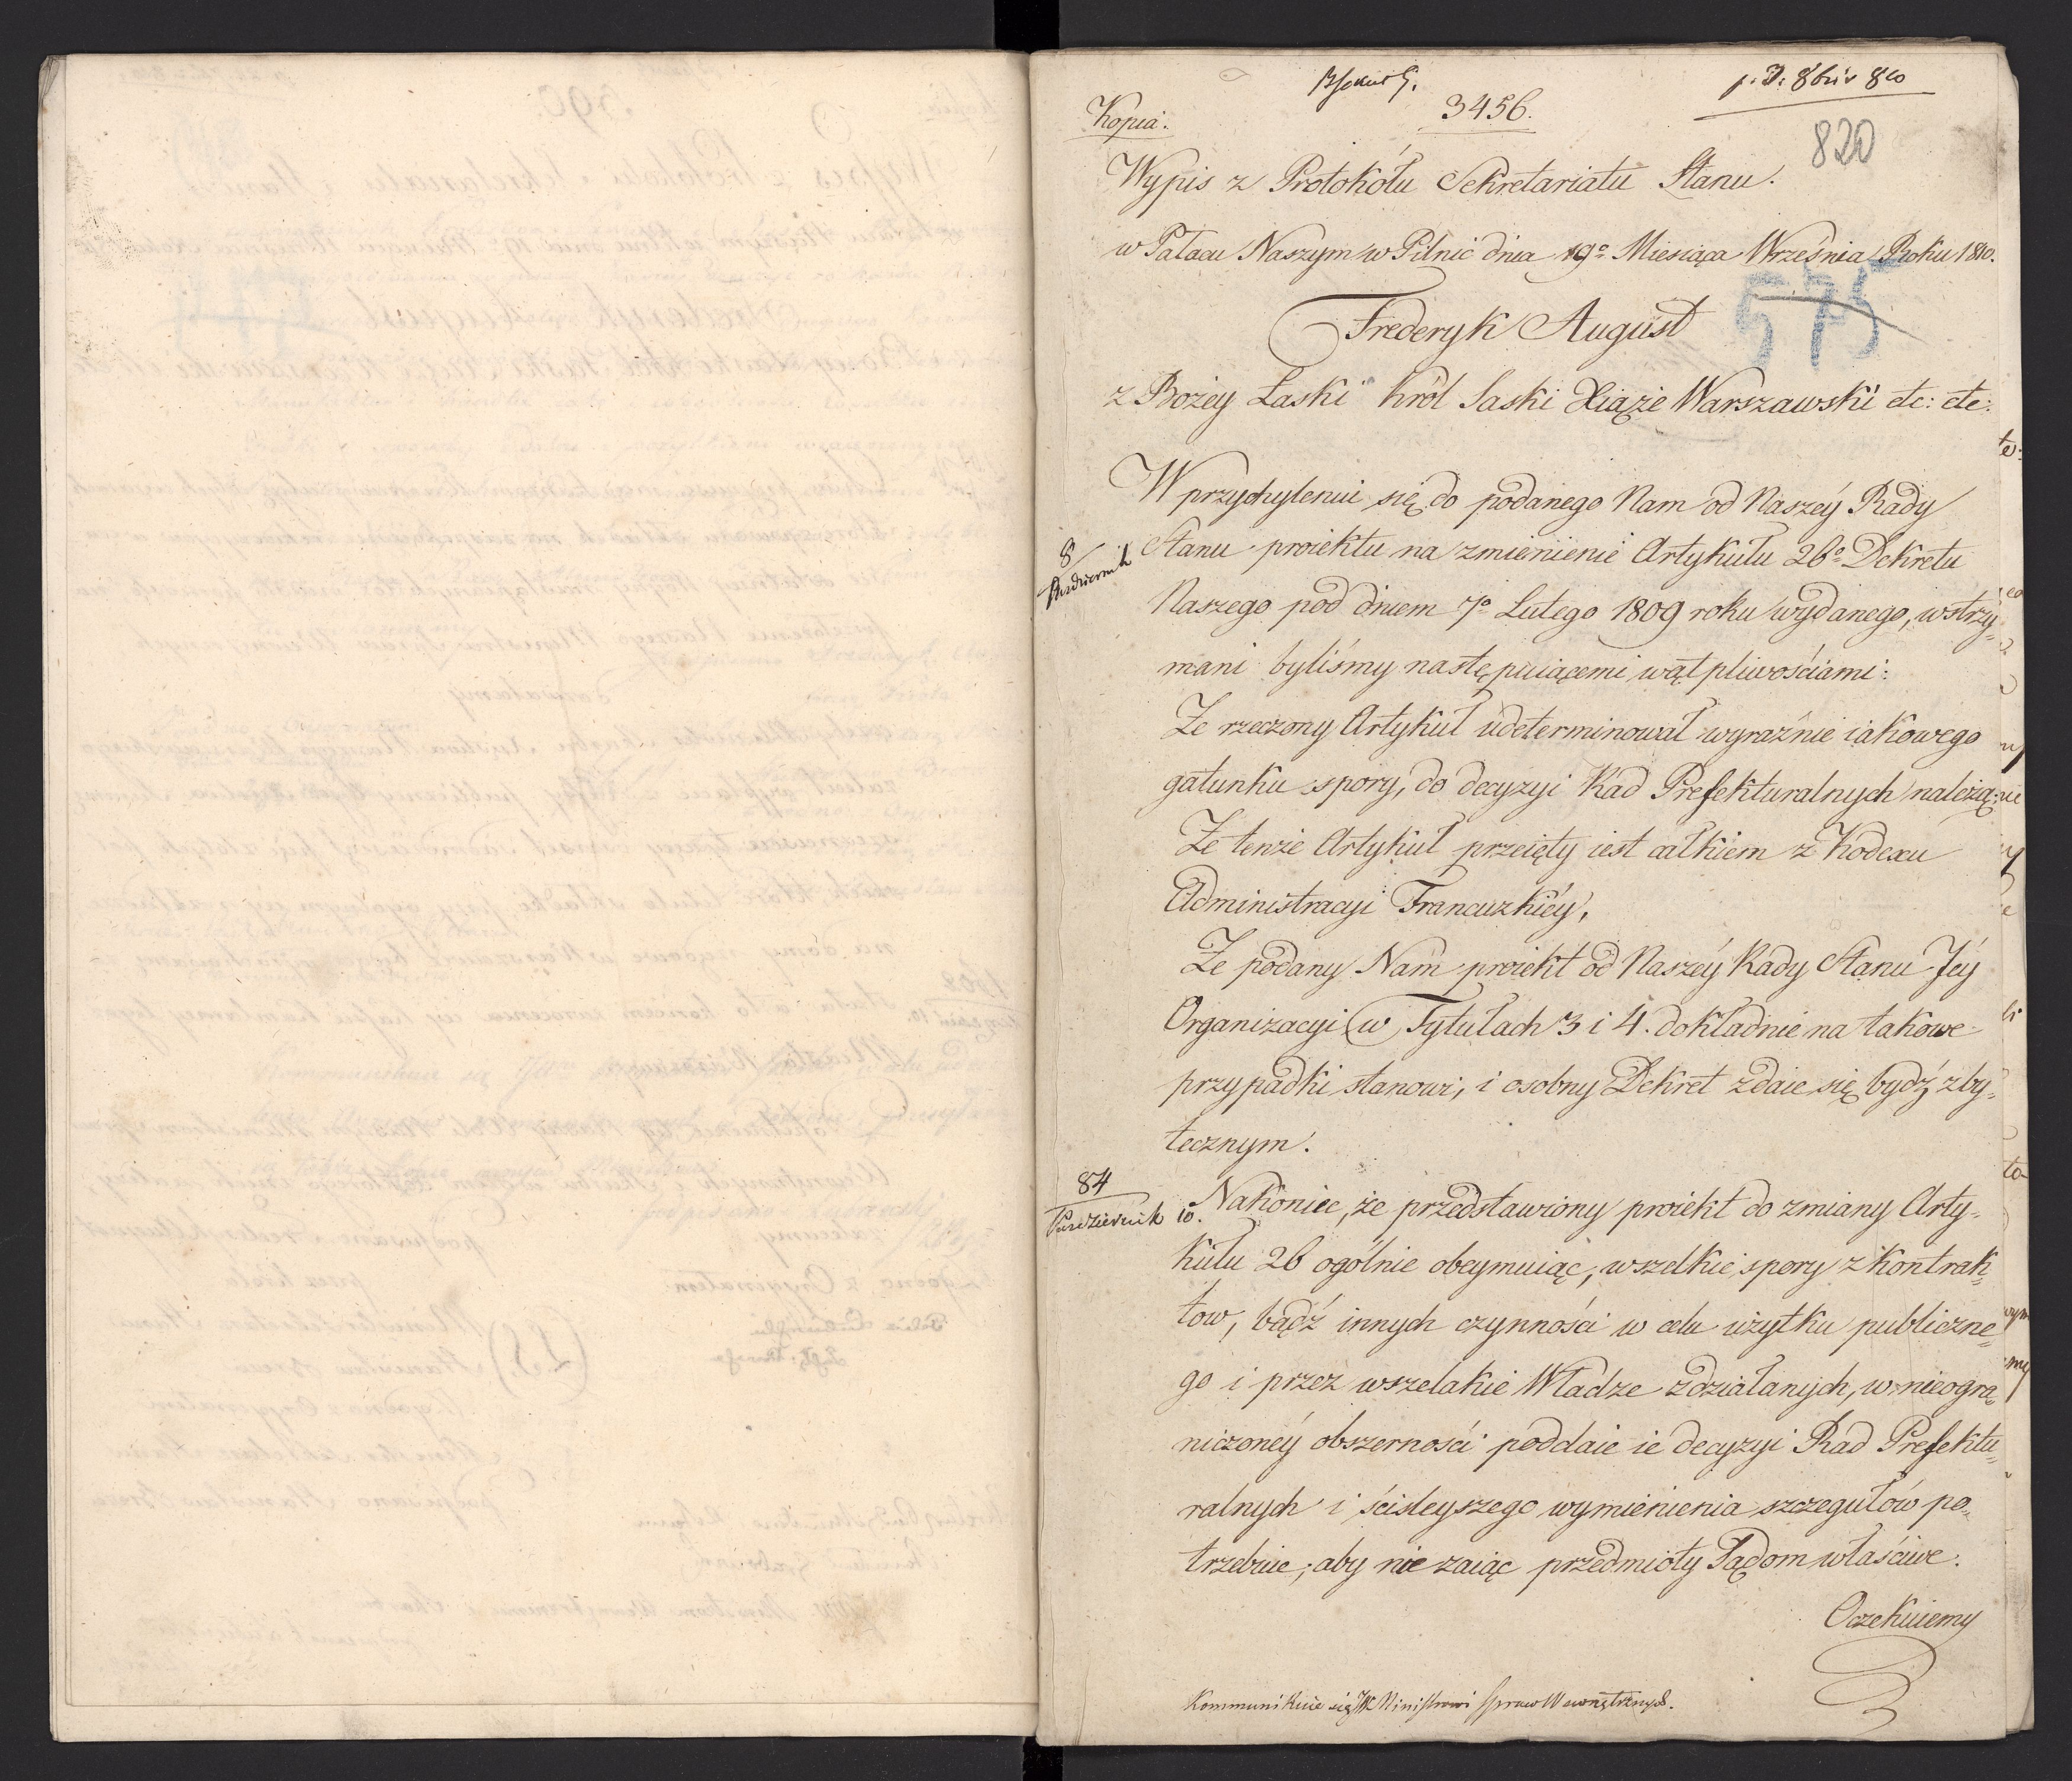 p. D: 8bris 810
Kopia.
3456.
820
Wypis z Protokółu Sekretariatu Stanu.
w Pałacu Naszym w Pilnic dnia 19o Miesiąca Września Roku 1810.
575
Frederyk August
z Bożey Łaski Król Saski Xiąże Warszawski etc: etc:
W przychyleniu się do podanego Nam od Naszéy Rady
Stanu proiektu na zmienienie Artykułu 26o Dekretu
8
Październik
Naszego pod dniem 7o Lutego 1809 roku wydanego, wstrzy„
mani byliśmy następuiącemi wątpliwościami:
Że rzeczony Artykuł udeterminował wyraźnie iakowego
gatunku spory, do decyzyi Rad Prefekturalnych należą:
Że tenże Artykuł przeięty iest całkiem z Kodexu
Administracyi Francuzkiéy,
Że podany Nam proiekt od Naszéy Rady Stanu Jéy
Organizacyi w Tytułach 3 i 4. dokładnie na takowe
przypadki stanowi, i osobny Dekret zdaie się bydź zby„
tecznym.
84
Październik 10.
Nakoniec, że przedstawiony proiekt do zmiany Arty„
kułu 26 ogólnie obeymuiąc, wszelkie spory z kontrak„
tow, bądź innych czynności w celu użytku publiczne„
go i przez wszelakie Władze zdziałanych, w nieogra„
niczonéy obszerności poddaie ie decyzyi Rad Prefektu„
ralnych i ścisleyszego wymienienia szczegułów po„
trzebuie, aby nie zaiąc przedmioty Sądom właściwe.
Oczekuiemy
Kommunikuie się JW Ministrowi Spraw Wewnętrznych.